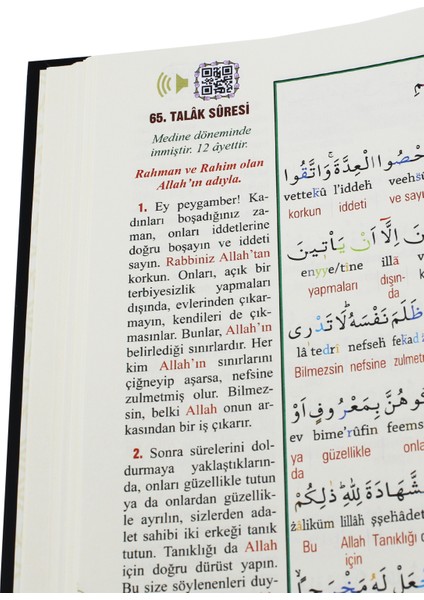 65. TALÂK SÛRESİ
Medine döneminde
inmiştir. 12 âyettir.
Rahman ve Rahim olan
Allah'ın adıyla.
1. Ey peygamber! Ka-
dınları boşadığınız za-
man, onları iddetlerine
doğru boşayın ve iddeti
sayın. Rabbiniz Allah'tan
korkun. Onları, açık bir
terbiyesizlik yapmaları
dışında, evlerinden çıkar-
mayın, kendileri de çık-
masınlar. Bunlar, Allah'ın
belirlediği sınırlardır. Her
kim Allah'ın sınırlarını
çiğneyip aşarsa, nefsine
zulmetmiş olur. Bilmez-
sin, belki Allah onun ar-
kasından bir iş çıkarır.
2. Sonra sürelerini dol-
durmaya yaklaştıkların-
da, onları güzellikle tutun
ya da onlardan güzellik-
le ayrılın, sizlerden ada-
let sahibi iki erkeği tanık
tutun. Tanıklığı da Allah
için doğru dürüst yapın.
Bu size söylenenleri duy-
حْصُوا الْعِدَّةَ وَاتَّقُوا
vettekû l'iddeh veehs
korkun iddeti ve say
نَ اِلَّا اَنْ يَأْتِينَ
enyye/tîne illâ
yapmaları dışın-
da
ظَلَمَ نَفْسَهُ لَا تَدْرِى
lâ tedrî nefseh fekad
Bilmezsin nefsine zulmetm
قُوهُنَّ بِمَعْرُوفٍ اَوْ
ev bime'rûfin feems
ya güzellikle onla
da
شَّهَادَةَ لِلّٰهِ ذٰلِكُمْ
zâliküm lillâh şşehâdet
Bu Allah Tanıklığı
için